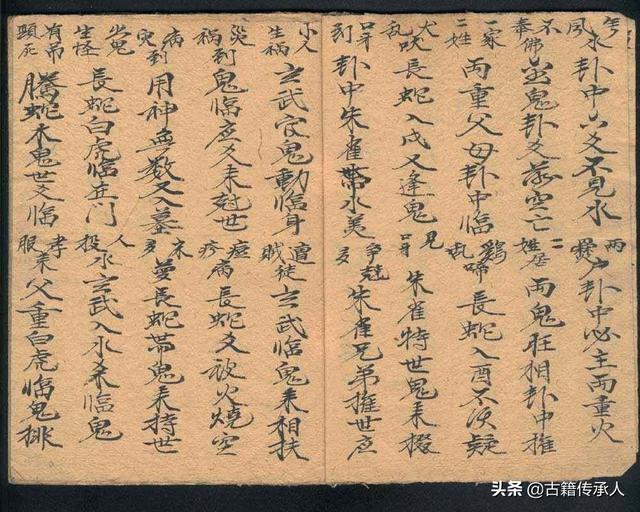 水卦中六爻不見水 兩戶卦中必主兩重火
不奉佛 金鬼卦爻落空亡 二姓居 兩鬼旺相卦中推
一家二姓 兩重父母卦中临 鷄乱啼 長蛇入酉不須疑
犬乱吠 長蛇入戌又逢鬼 見口舌 朱雀持世鬼来掇
口舌到 卦中朱雀帶水美 争競多 朱雀兄弟推世应
小人生祸 玄武官鬼動临身 遭賊徒 玄武临鬼来相扶
災祸到 鬼临应爻来尅世 痘疹病 長蛇爻被火燒空
病災到 用神無数又入墓 夢 長蛇帶鬼来持世
出鬼生怪 長蛇白虎临在门 人投水 玄武入水来临鬼
有吊頸死 騰蛇木鬼世爻临 孝服来 父重白虎临鬼排
头条 @古籍传承人